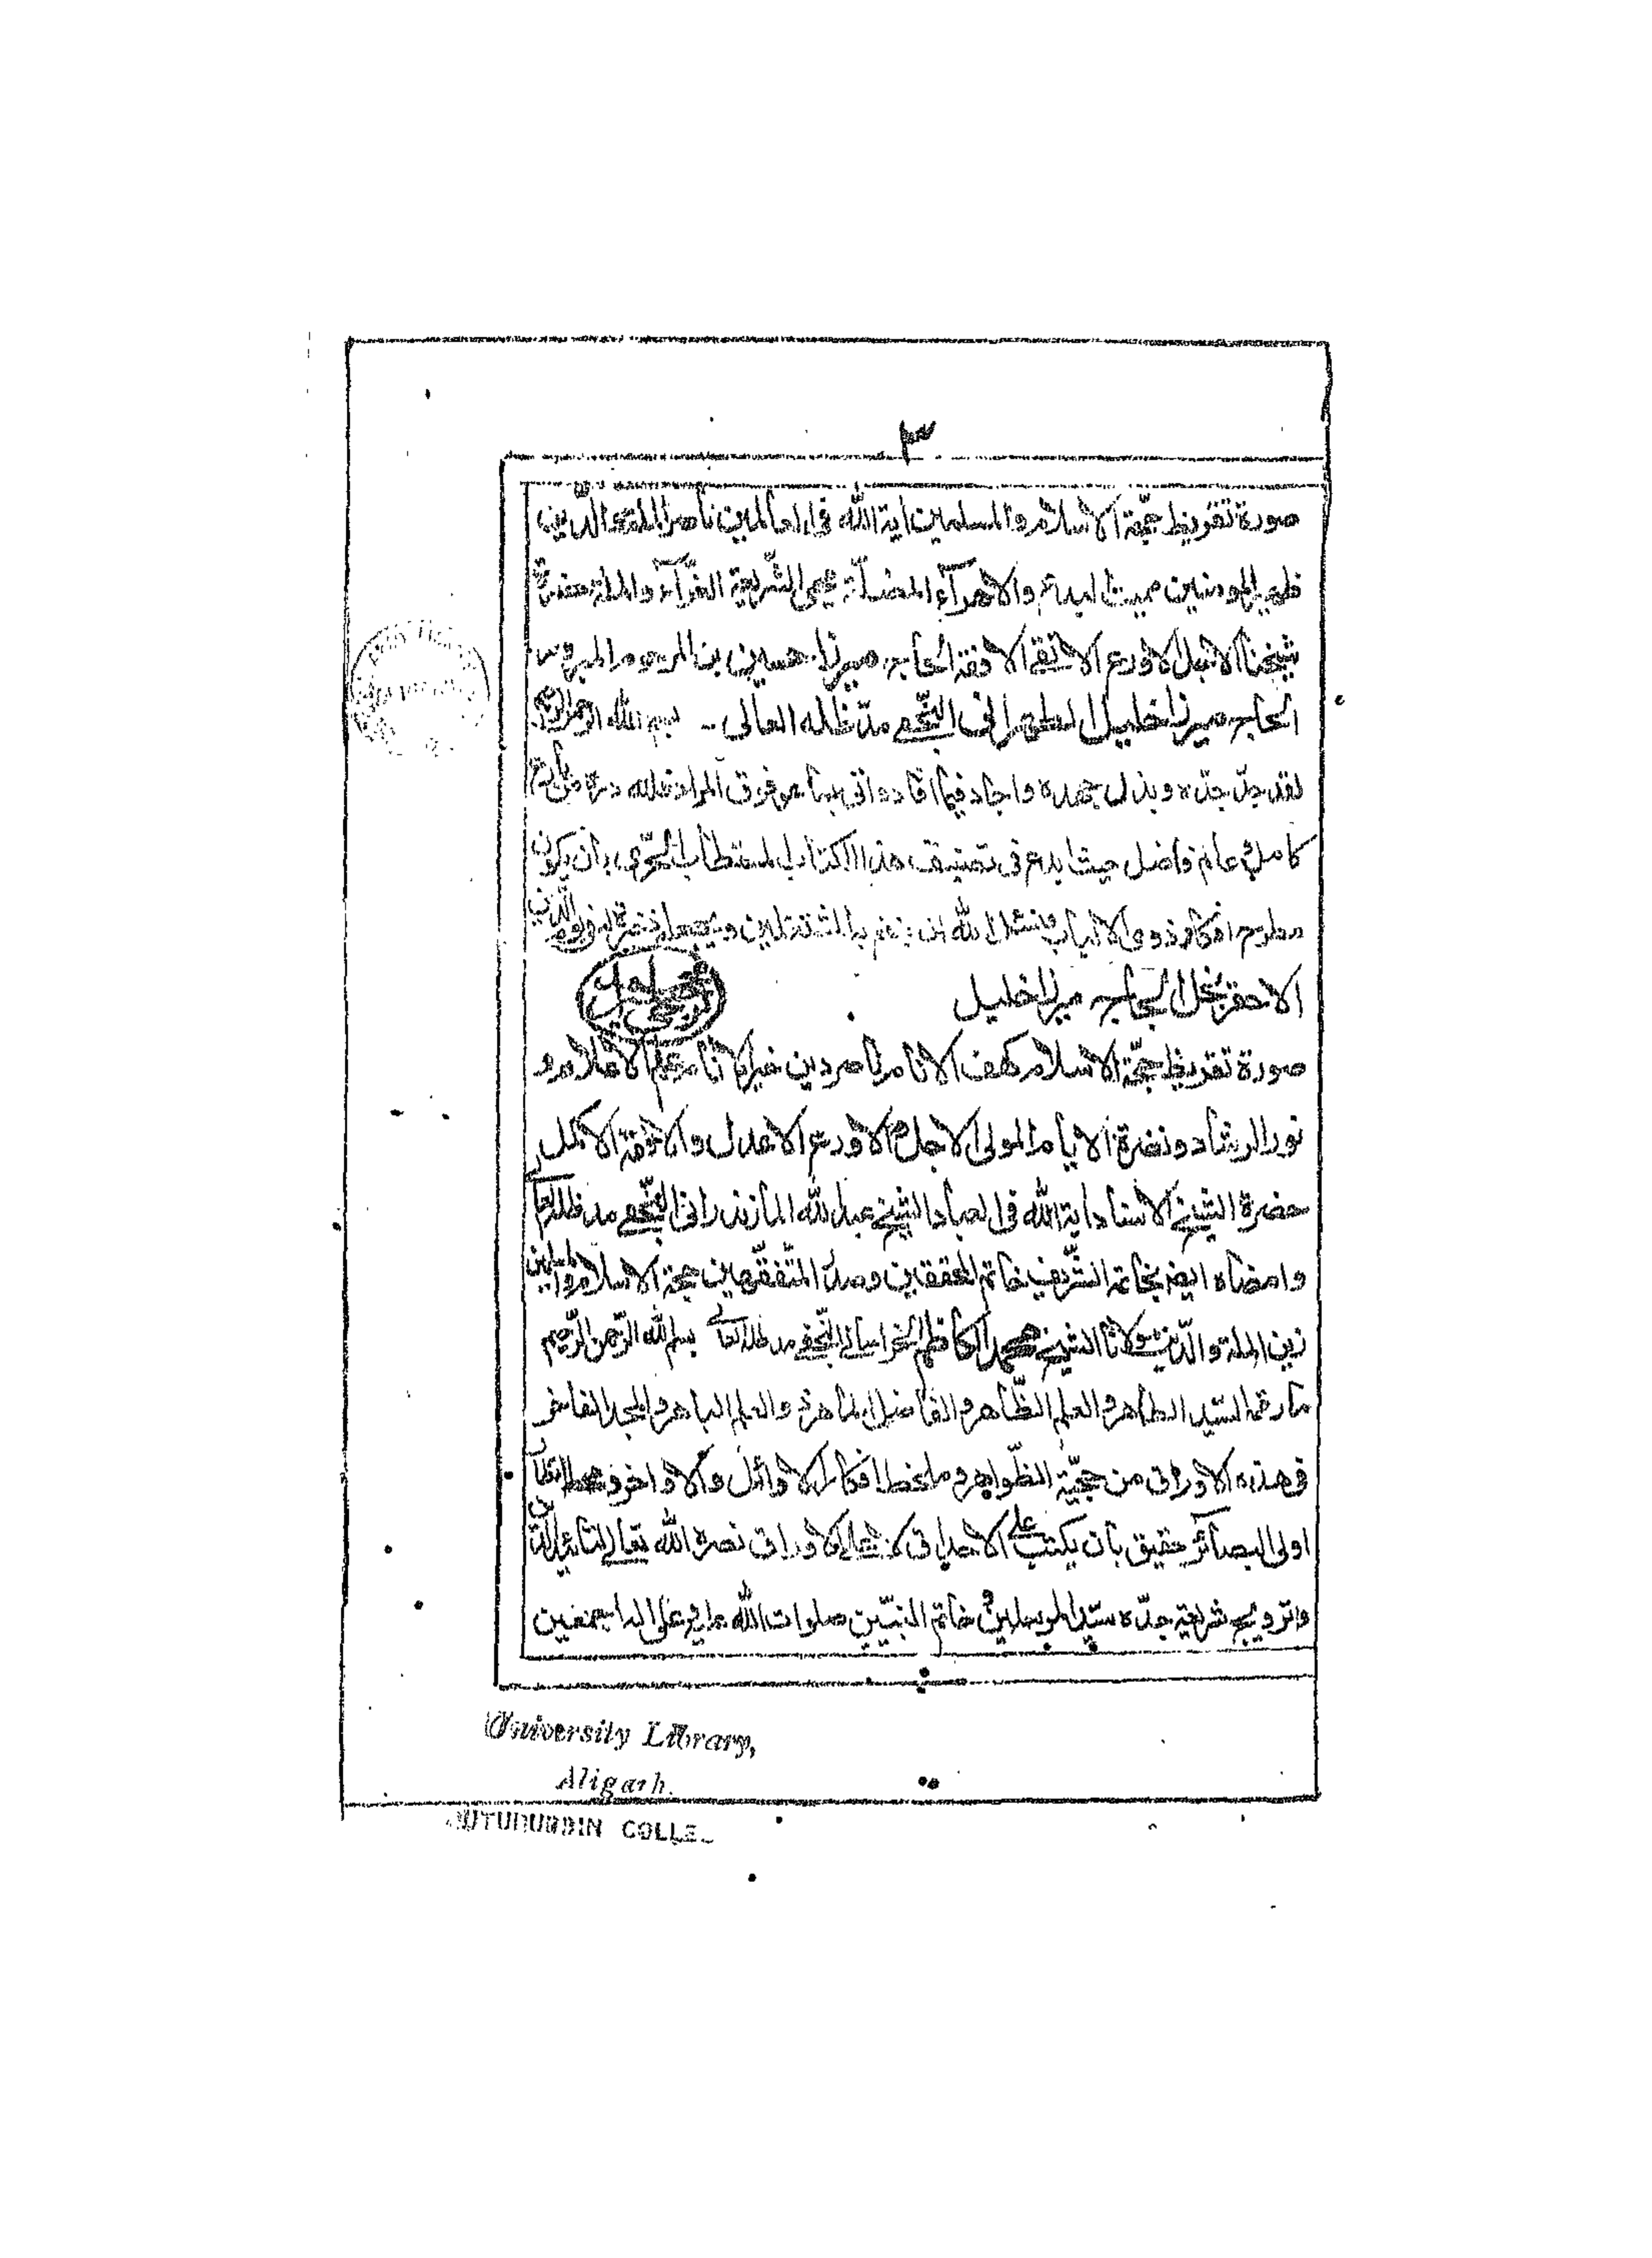 ٣
صورة تقريظ حجّة الاسلام والمسلمين اية الله فى العالمين ناصر الملة والدّين
ظهير المومنين مميت البدع والاهوآء المضلّة محيى الشّريعة الغرّآء والملة
شيخنا الاجل الاورع الاتقى الافقه الحاج ميرزا حسين بن المرحوم المبرور
الحاج ميرزا خليل الطهرانى النّجفى مدّ ظله العالى - بسم الله الرحمن الرحيم
لقد جلّ جدّه وبذل جهده واجاد فيما افاد واتى بما هو فوق المراد فلله درّه من
كامل عالم فاضل حيث ابدع فى تصنيف هذا الكتاب المستطاب الحرّى بان يكون
مطرح افكار ذوى الالباب فنسئل الله ان ينفع به المشتغلين ويجعله ذخرا ليوم الدّين
الاحقر نجل الحاج ميرزا خليل
صورة تقريظ حجّة الاسلام كهف الانام ناصر دين خير الانام علم الاعلام و
نور الرشاد ونضرة الايام المولى الاجل الاورع الاعدل والافقه الاكمل
حضرة الشيخ الاستاد اية الله فى العباد الشيخ عبد الله المازندرانى النّجفى مد ظله العالى
وامضاه ايضا بخاتمه الشّريف خاتم المحققين وصدر المتّفقّهين حجة الاسلام والمسلمين
زين الملة والدّين مولانا الشيخ محمد الكاظم الخراسانى النّجفى مد ظله العالى بسم الله الرّحمن الرّحيم
ما رقمه السّيد الطاهر والعلم الظّاهر والفاضل الماهر والعلم الباهر والمجد الفاخر
فى هذه الاوراق من حجّيّة الظّواهر وملخط افكار الاوائل والاواخر ومحط
اولى البصآئر حقيق بان يكتب على الاحداق لا على الاوراق نصره الله تعالى لتائيد الدّين
وترويج شريعة جدّه سيّد المرسلين و خاتم النبيّين صلوات الله عليه وعلى اله اجمعين
University Library,
Aligarh.